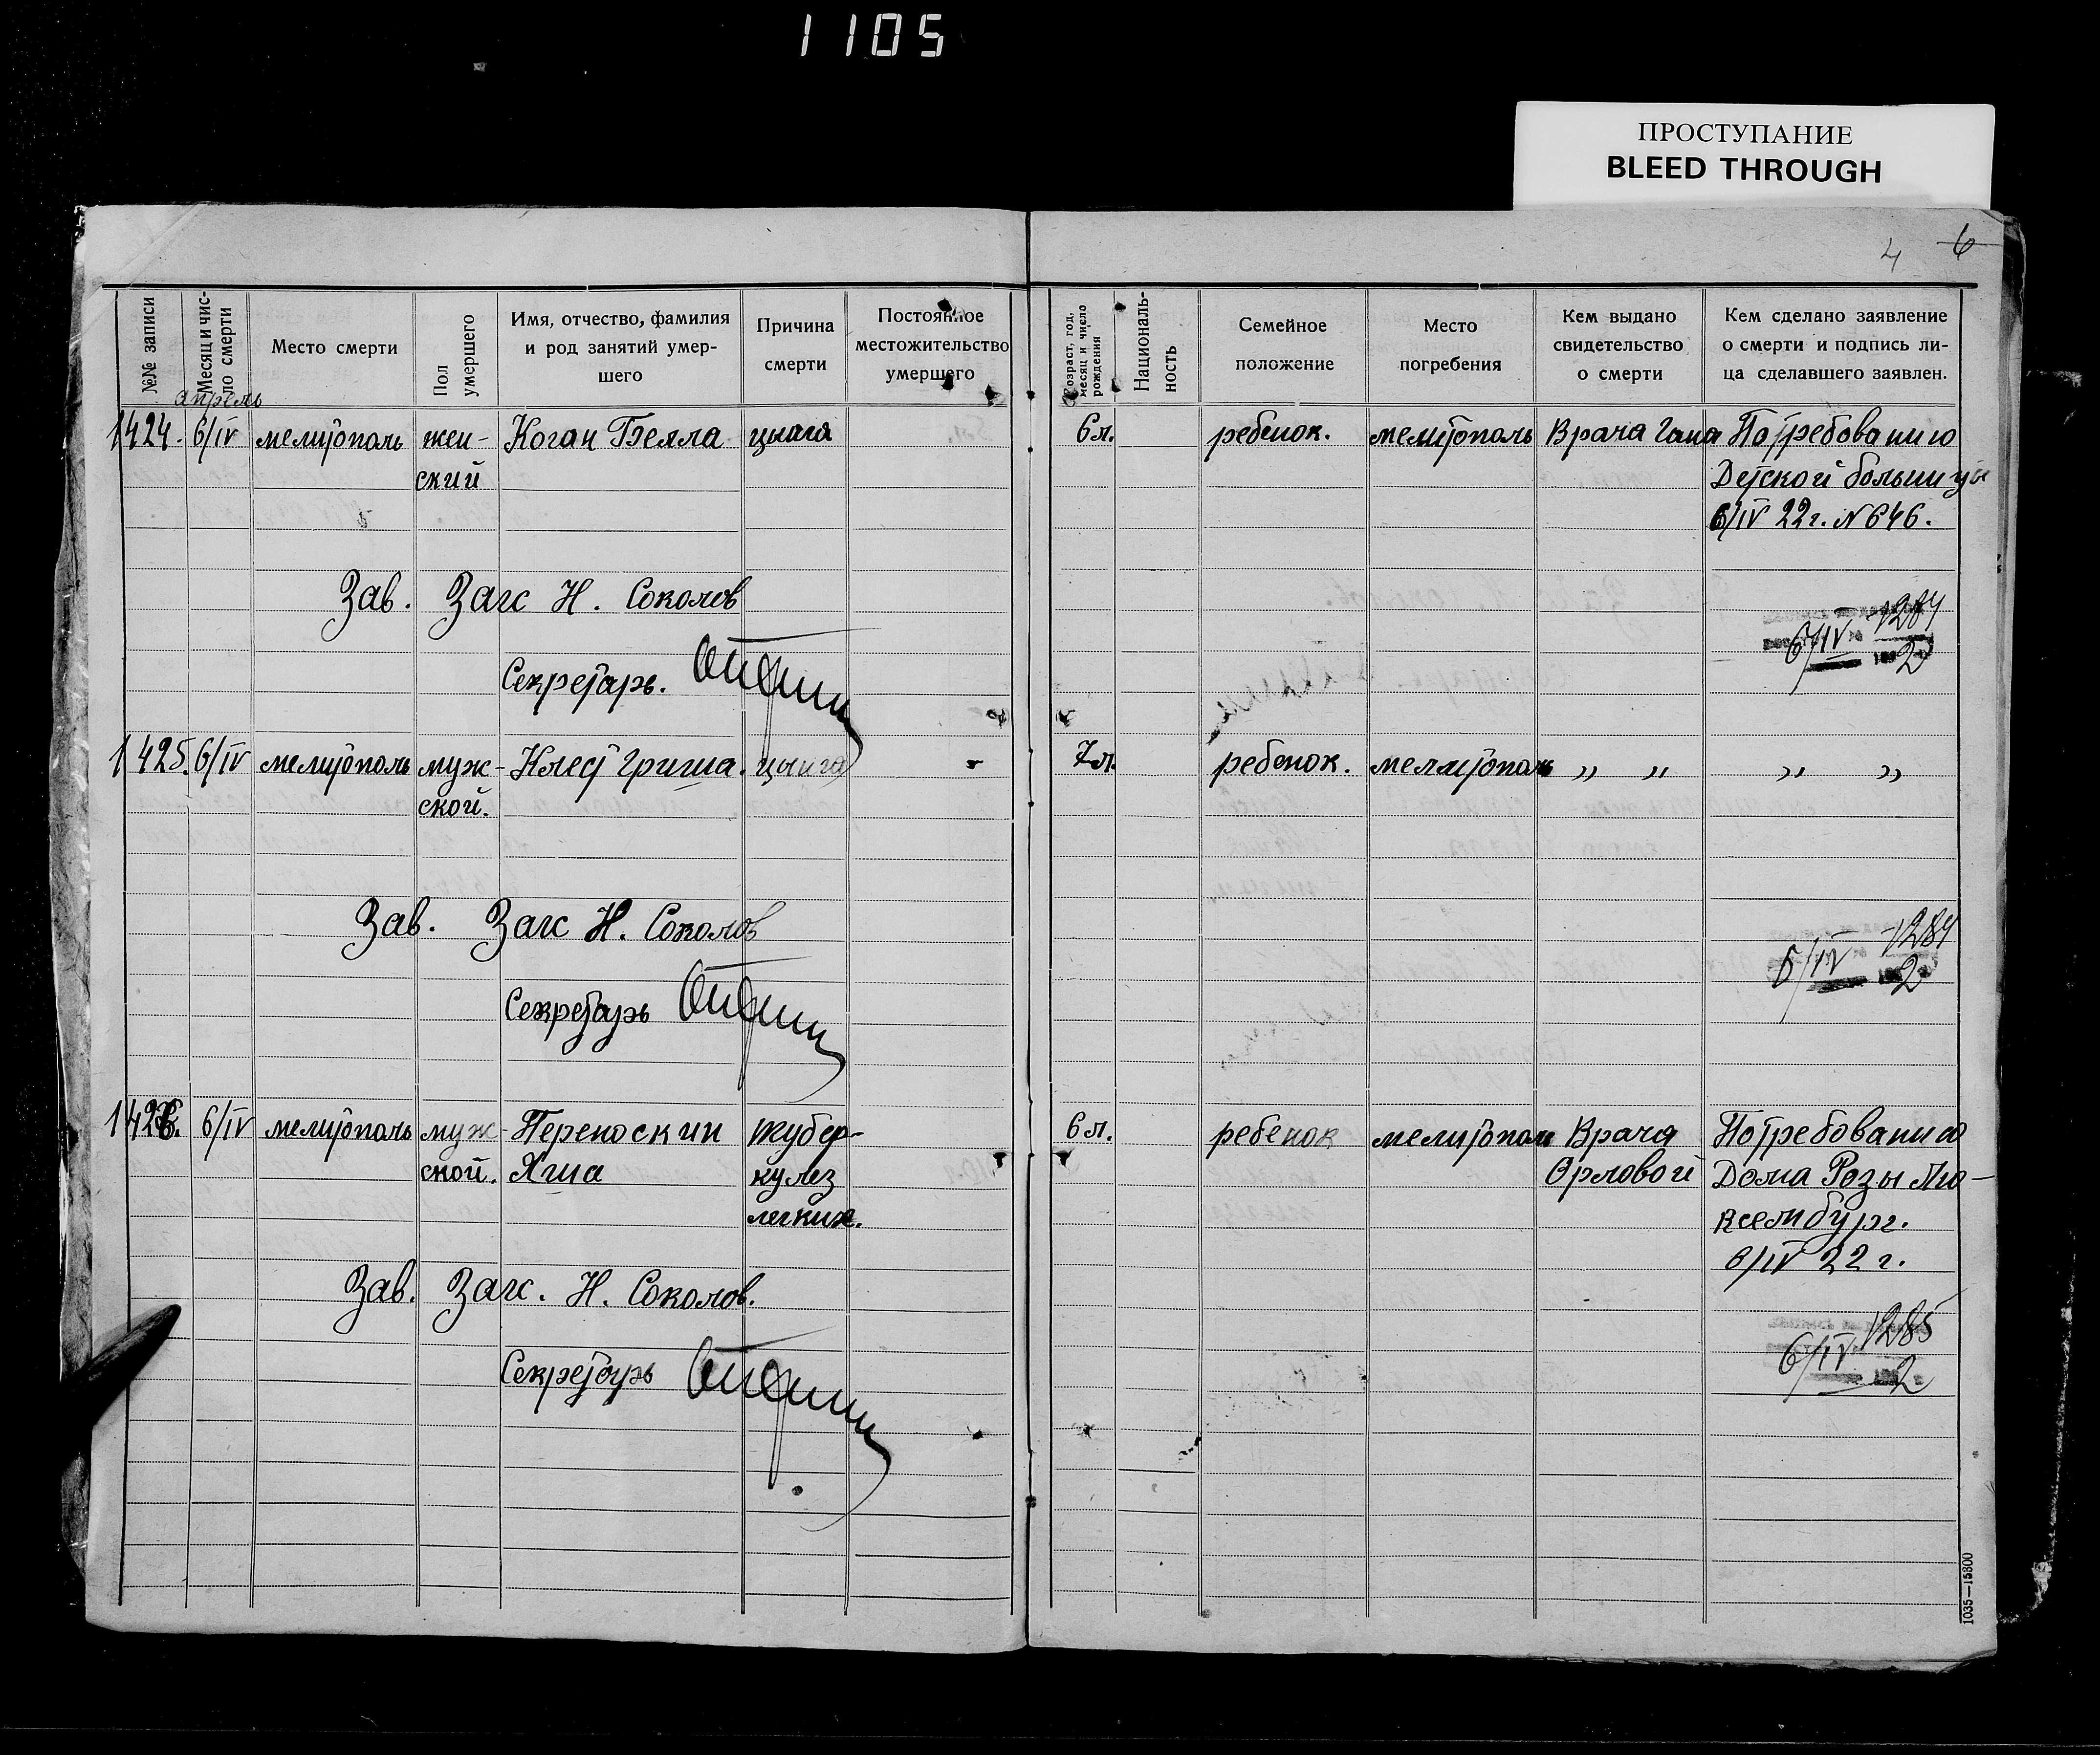 1105
ПРОСТУПАНИЕ
BLEED THROUGH
4 6
№№ записи
Месяц и чис-
ло смерти
Место смерти
Пол
умершего
Имя, отчество, фамилия
и род занятий умер-
шего
Причина
смерти
Постоянное
местожительство
умершего
Возраст, год,
месяц и число
рождения
Националь-
ность
Семейное
положение
Место
погребения
Кем выдано
свидетельство
о смерти
Кем сделано заявление
о смерти и подпись ли-
ца сделавшего заявлен.
апрель
1424. 6/IV мелитополь жен- Коган Белла цынга 6 л. ребенок. мелитополь Врача Потребованию
ский Детской больницы
6/IV 22 г. N 646.
Зав. Загс Н. Соколов
6/IV 1284
2
Секретарь.
1425. 6/IV мелитополь муж- Клет Гриша. цынга 7 л. ребенок. мелитополь „ „ „ „
ской.
Зав. Загс Н. Соколов
6/IV 1284
2
Секретарь
1426. 6/IV мелитополь муж- Переноскин тубер- 6 л. ребенок мелитополь Врача Потребованию
ской. Яша кулез Орловой Дома Розы Лю-
легких. ксембург.
6/IV 22 г.
Зав. Загс. Н. Соколов.
6/IV 1285
2
Секретарь
1035—15300